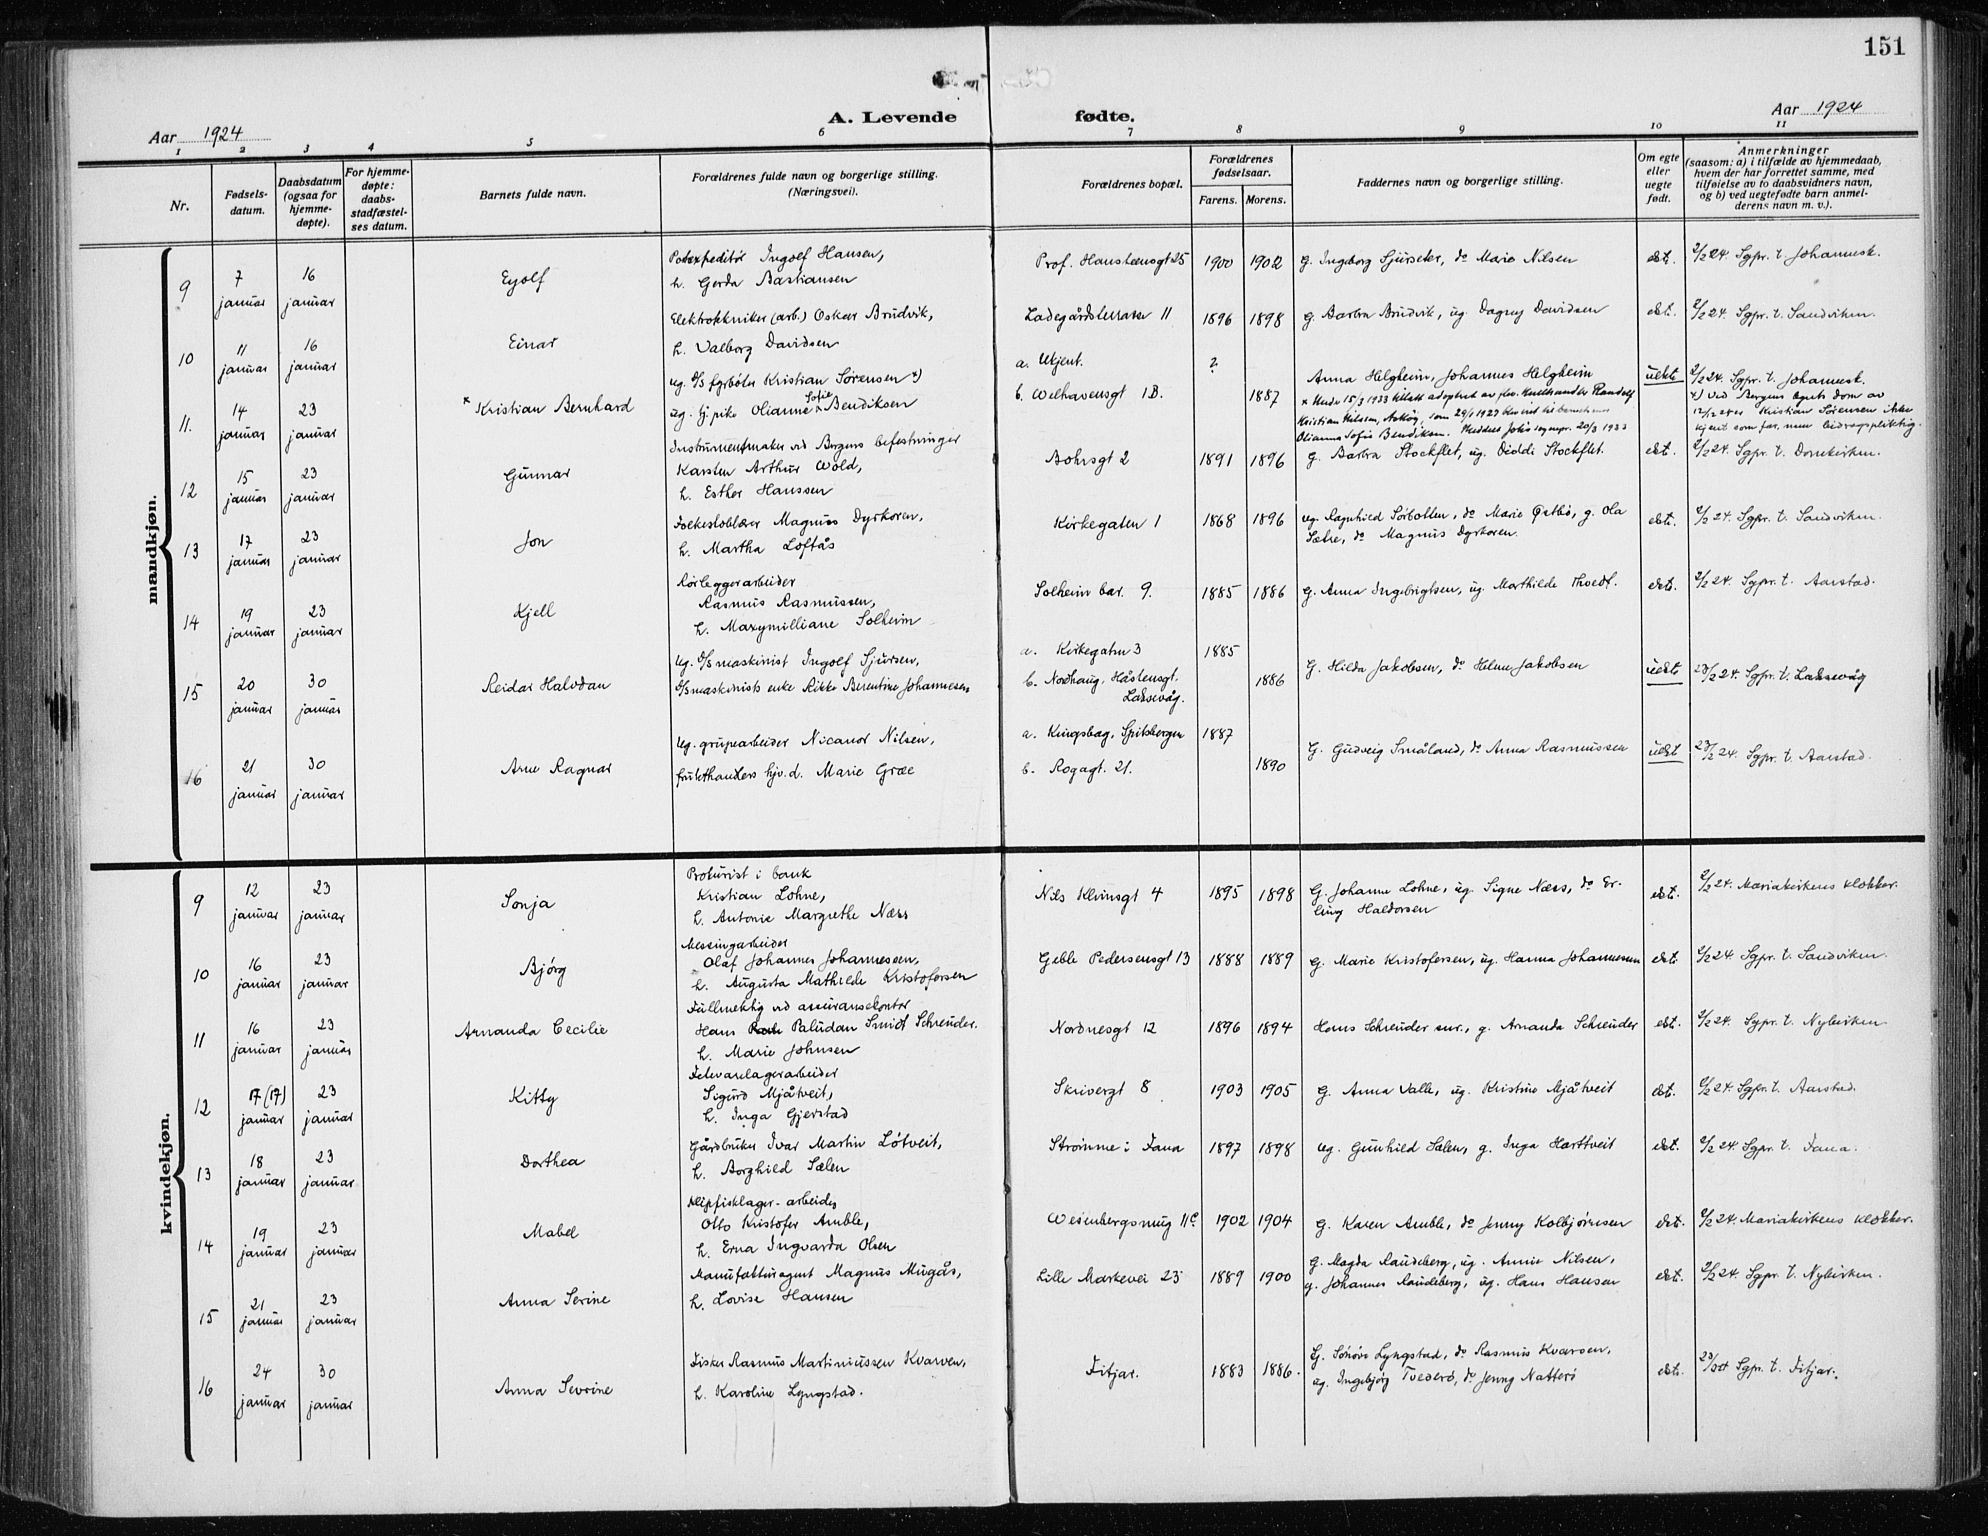 151
A. Levende fødte.
Aar 1924
Aar 1924
1 2 3 4 5 6 7 8 9 10 11
Nr.
Fødsels-
datum.
Daabsdatum
(ogsaa for
hjemme-
døpte).
For hjemme-
døpte:
daabs-
stadfæstel-
ses datum.
Barnets fulde navn.
Forældrenes fulde navn og borgerlige stilling.
(Næringsvei).
Forældrenes bopæl.
Forældrenes
fødselsaar.
Farens. Morens.
Faddernes navn og borgerlige stilling.
Om egte
eller
uegte
født.
Anmerkninger
(saasom: a) i tilfælde av hjemmedaab,
hvem der har forrettet samme, med
tilføielse av to daabsvidners navn,
og b) ved uegtefødte barn anmel-
derens navn m. v.).
mandkjøn.
9
7 januar
16 januar
Eyolf
Ingolf Hansen,
h. Gerda Bastiansen
Prof. Hansteensgt 25
1900 1902
g. Ingborg Sjurseter, do Marie Nilsen
ekt.
2/2 24. Sgpr. t. Johannesk.
10
11 januar
16 januar
Einar
(arb.) Oskar Brudvik,
h. Valborg Davidsen
Ladegårdsterrasse 11
1896 1898
g. Barbra Brudvik, ug. Dagny Davidsen
ekt.
2/2 24. Sgpr. t. Sandviken.
11.
14 januar
23 januar
× Kristian Bernhard
ug. d/s fyrbøter Kristian Sørensen ×)
ug. hj. pike Olianne Sofie Bendiksen
a. Ukjent.
b. Welhavensgt 1B.
? 1887
Anna Helgheim, Johannes Helgheim
uekte
2/2 24. Sgpr. t. Johannesk.
×) Ved Bergens byrets dom av
12/12 24 er Kristian Sørensen ikke
kjent som far, men bidragspliktig.
12
15 januar
23 januar
Gunnar
Instrumentmaker ved Bergens befestninger
Karsten Arthur Wold,
h. Esther Hanssen
Bohrsgt 2
1891 1896
g. Barbra Stockflet, ug. Diddi Stockflet.
ekt.
2/2 24. Sgpr. t. Domkirken.
13
17 januar
23 januar
Jon
Folkeskolelærer Magnus Dyrkoren,
h. Martha Loftås
Kirkegaten 1
1868 1896
ug. Ragnhild Sørbotten, do Marie Østbø, g. Ola
Sætre, do Magnus Dyrkoren.
ekt.
2/2 24. Sgpr. t. Sandviken.
14
19 januar
23 januar
Kjell
Rørleggerarbeider
Rasmus Rasmussen,
h. Maxymilliane Solheim
Solheim bar. 9.
1885 1886
g. Anna Ingebrigtsen, ug. Marthilde Thoedt.
ekt.
2/2 24. Sgpr. t. Aarstad.
15
20 januar
30 januar
Reidar Halvdan
ug. d/s maskinist Ingolf Sjursen,
d/s maskinists enke Rikke Berentine Johannesen
a. Kirkegaten 3
b. Nordhaug, Håstensgt.
Laksevåg.
1885 1886
G. Hilda Jakobsen, do Helene Jakobsen
uekte
23/2 24. Sgpr. t. Laksevåg
16
21 januar
30 januar
Arne Ragnar
ug. grupearbeider Nicanor Nilsen,
frukthandlers hjv. d. Marie Græe
a. Kingsbay, Spitsbergen
b. Rogagt. 21.
1887 1890
G. Gudveig Småland, do Anna Rasmussen
uekt
23/2 24. Sgpr. t. Aarstad.
kvindekjøn.
9
12 januar
23 januar
Sonja
Prokurist i bank
Kristian Lohne,
h. Antonie Margrethe Næss
Nils Klimsgt 4
1895 1898
G. Johanne Lohne, ug. Signe Næss, do Er-
ling Haldorsen
ekt.
2/2 24. Mariakirkens klokker.
10
16 januar
23 januar
Bjørg
Messingarbeider
Olaf Johannes Johannessen,
h. Augusta Mathilde Kristofersen
Geble Pedersensgt 13
1888 1889
g. Marie Kristofersen, ug. Hanna Johannessen
ekt.
2/2 24. Sgpr. t. Sandviken.
11
16 januar
23 januar
Arnanda Cecilie
Fullmektig ved assuransekontor
Hans Paludan Smidt Schreuder.
h. Marie Johnsen
Nordnesgt 12
1896 1894
Hans Schreuder snr., g. Arnanda Schreuder
ekt.
2/2 24. Sgpr. t. Nykirken
12
17 (17) januar
23 januar
Kitty
Fetevarelagerarbeider
Sigurd Mjåtveit,
h. Inga Gjerstad
Skivergt 8
1903 1905
g. Anna Valle, ug. Kristine Mjåtveit
ekt.
2/2 24. Sgpr. t. Aarstad.
13
18 januar
23 januar
Dorthea
Gårdbruker Ivar Martin Løtveit,
h. Borghild Sælen
Strømme i Fana
1897 1898
ug. Gunhild Sælen, g. Inga Harttveit
ekt.
2/2 24. Sgpr. t. Fana.
14
19 januar
23 januar
Mabel
Klipfisklager-arbeider
Otto Kristofer Amble,
h. Erna Ingvarda Olsen
Wesenbergsmug 11c
1902 1904
g. Karen Amble, do Jenny Kolbjørnsen
ekt.
2/2 24. Mariakirkens klokker.
15
21 januar
23 januar
Anna Serine
Manufakturagent Magnus Mugås,
h. Lovise Hansen
Lille Markevei 23
1889 1900
g. Magda Raudeberg, ug. Annie Nilsen,
g. Johannes Raudeberg, ug. Hans Hansen
ekt.
2/2 24. Sgpr. t. Nykirken.
16
24 januar
30 januar
Anna Sevrine
Fisker Rasmus Martiniussen Kvarven,
h. Karoline Lyngstad.
Fitjar.
1883 1886.
G. Lyngstad, do Rasmus Kvarven,
ug. Ingebjørg Tvederø, do Jenny Natterø
ekt.
Sgpr. t. Fitjar.